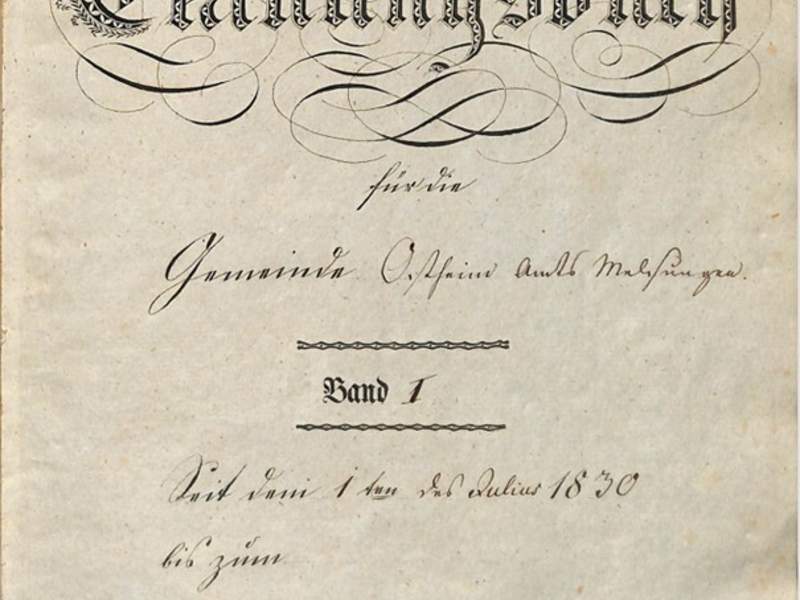 Trauungsbuch
für die
Gemeinde Ostheim Amts Melsungen.
Band I
Seit dem 1ten des Julius 1830
bis zum